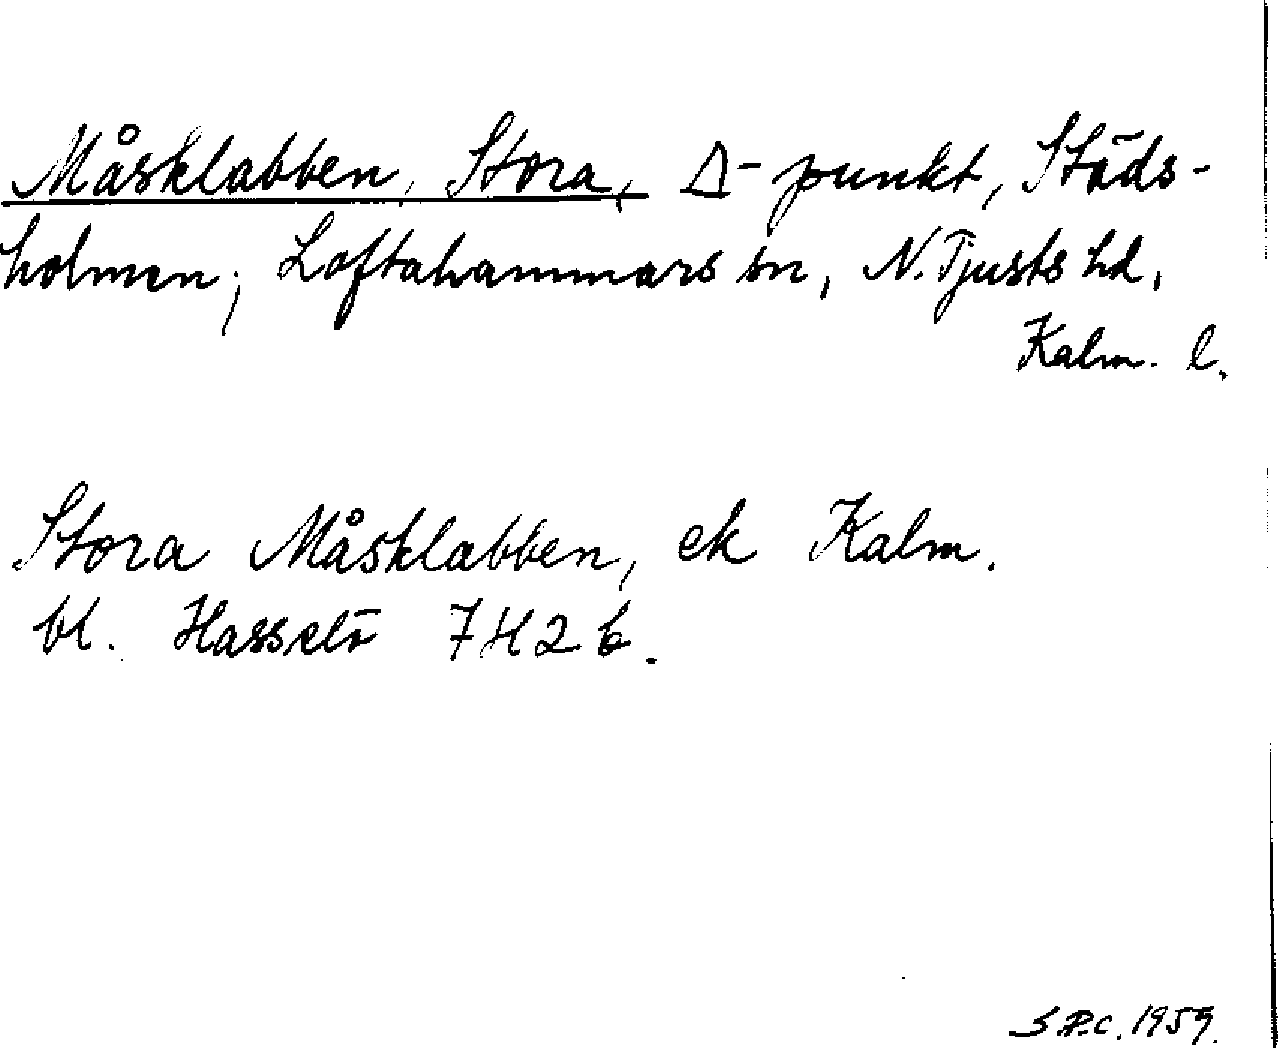 Måsklabben, Stora, Δ-punkt, Städs-
holmen, Loftahammars sn, N. Tjusts hd,
Kalm. l.
Stora Måsklabben, ek Kalm.
bl. Hasselö 7H2b.
1959.